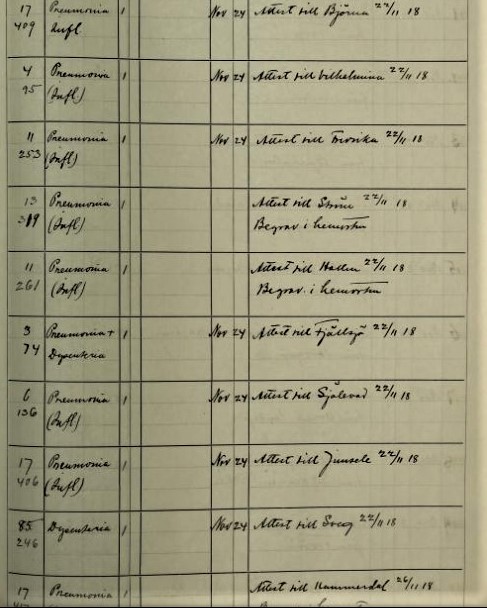 17 Pneumonia Nov 24 Attest till Björna 22/11 18
409 Infl.
4 Pneumonia 1 Nov 24 Attest till Vilhelmina 22/11 18
95 (Infl)
11 Pneumonia 1 Nov 24 Attest till Fredrika 22/11 18
253 (Infl)
13 Pneumonia 1 Attest till Ström 22/11 18
319 (Infl) Begrav i hemorten
11 Pneumonia 1 Attest till Hallen 22/11 18
261 (Infl) Begrav. i hemorten
3 Pneumonia + 1 Nov 24 Attest till Fjällsjö 22/11 18
74 Dysenteria
6 Pneumonia 1 Nov 24 Attest till Själevad 22/11 18
136 (Infl)
17 Pneumonia 1 Nov 24 Attest till Junsele 22/11 18
406 (Infl)
85 Dysenteria 1 Nov 24 Attest till Sveg 22/11 18
246
17 Pneumonia 1 Attest till Hammerdal 26/11 18